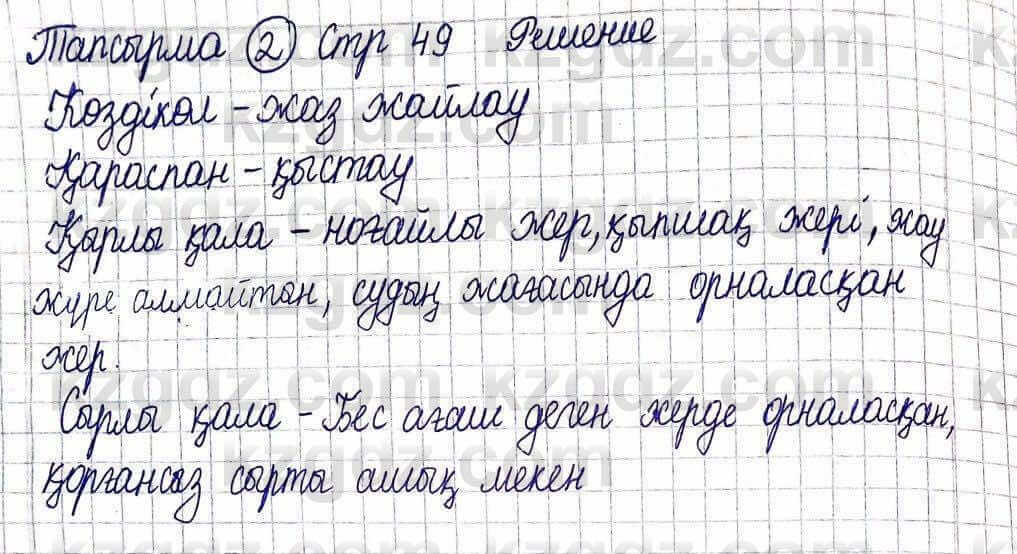 Тапсырма 2 Стр 49 Решение
Көздікөл - жаз жайлау
Қараспан - қыстау
Қырлы қала - ноғайлы жер, қыпшақ жері, жау
жүре алмайтын, судың жағасында орналасқан
жер.
Сырлы қала - Бес ағаш деген жерде орналасқан,
қорғансыз сырты ашық мекен